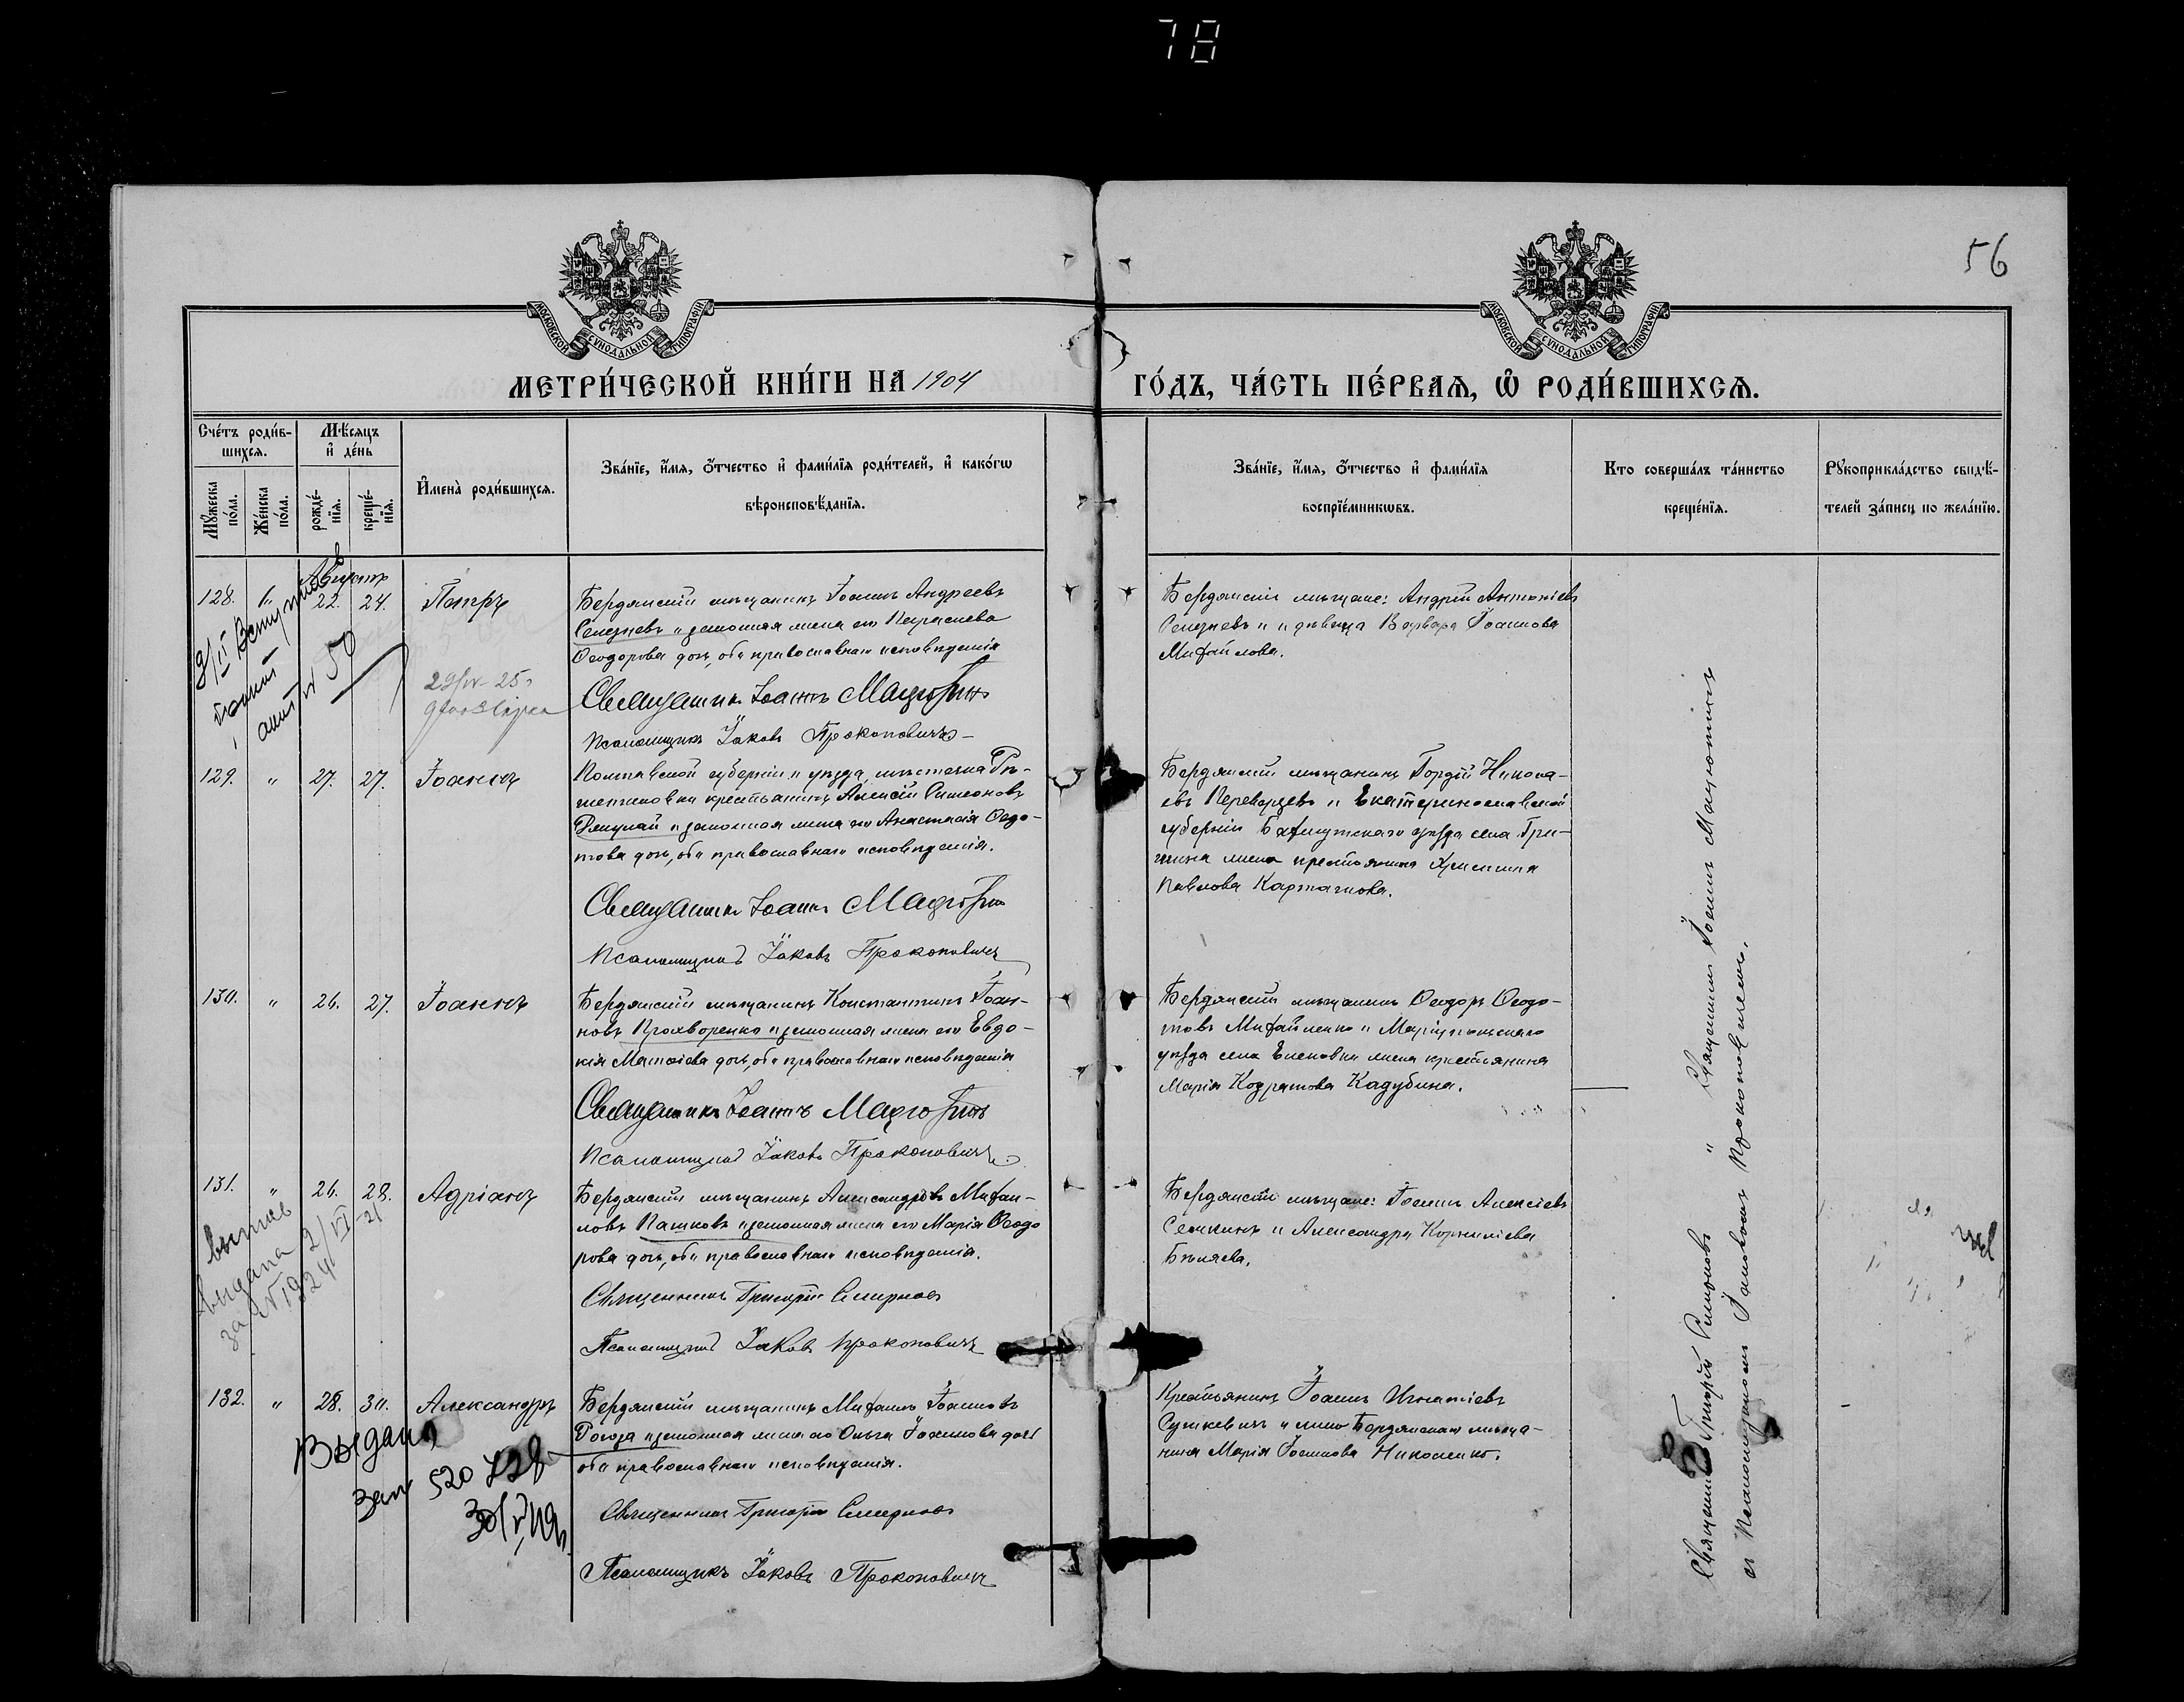 78
56
МОСКОВСКОЙ СѴНОДАЛЬНОЙ ТИПОГРАФІИ
МОСКОВСКОЙ СѴНОДАЛЬНОЙ ТИПОГРАФІИ
МЕТРИ́ЧЕСКОЙ КНИ́ГИ НА 1904 ГО́ДЪ, ЧА́СТЬ ПЕ́РВАѦ, Ѽ РОДИ́ВШИХСѦ.
Сче́тъ роди́вшихсѧ.
Мꙋ́жеска по́ла.
Же́нска по́ла.
Мѣ́сѧцъ и҆ де́нь
рожде́нїѧ.
креще́нїѧ.
И҆мена̀ роди́вшихсѧ.
Зва́нїе, и҆́мѧ, ѻ҆́тчество и҆ фами́лїѧ роди́телей, и҆ како́гѡ
вѣроисповѣ́данїѧ.
Зва́нїе, и҆́мѧ, ѻ҆́тчество и҆ фами́лїѧ
воспрїе́мникѡвъ.
Кто соверша́лъ та́инство
креще́нїѧ.
Рꙋкоприкла́дство свидѣ́-
телей за́писи по жела́нїю.
Августъ
128. " 22. 24. Петръ
Бердянскій мѣщанинъ Іоаннъ Андреевъ
Селезневъ и законная жена его Параскева
Ѳеодорова дочь, оба православнаго исповѣданія
Священникъ Іоаннъ
Псаломщикъ Іаковъ Прокоповичъ
Бердянскіе мѣщане: Андрей Антоніевъ
Селезневъ и дѣвица Варвара Іоаннова
Михайлова.
№ 50
129. " 27. 27. Іоаннъ
Полтавской губерніи и уѣзда, мѣстечка Рѣ-
шетиловки крестьянинъ Алексій Симеоновъ
и законная жена его Анастасія Ѳедо-
това дочь, оба православнаго исповѣданія.
Священникъ Іоаннъ
Псаломщикъ Іаковъ Прокоповичъ
Бердянскій мѣщанинъ Гордій Никола-
евъ Переверзевъ и Екатеринославской
губерніи Бахмутскаго уѣзда села Гри-
шина жена крестьянина
Павлова
130. " 26. 27. Іоаннъ
Бердянскій мѣщанинъ Константинъ Іоан-
новъ и законная жена его Евдо-
кія дочь, оба православнаго исповѣданія
Священникъ Іоаннъ
Псаломщикъ Іаковъ Прокоповичъ
Бердянскій мѣщанинъ Ѳеодоръ Ѳеодо-
товъ Михайленко и Маріупольскаго
уѣзда села Еленовки жена крестьянина
Марія Кадубина.
131. " 26. 28. Адріанъ
Бердянскій мѣщанинъ Александръ Михаи-
ловъ Пашковъ и законная жена его Марія Ѳеодо
рова дочь, оба православнаго исповѣданія.
Священникъ Григорій Смирновъ
Псаломщикъ Іаковъ Прокоповичъ
Бердянскіе мѣщане: Іоаннъ Алексіевъ
и Александра Корниліева
Бѣляева.
выпись
выдана
132. " 28. 30. Александръ
Бердянскій мѣщанинъ Михаилъ Іоанновъ
и законная жена его Ольга дочь
оба православнаго исповѣданія.
Священникъ Григорій Смирновъ
Псаломщикъ Іаковъ Прокоповичъ
Крестьянинъ Іоаннъ Игнатіевъ
Сушкевичъ и жена Бердянскаго мѣща-
нина Марія Іоаннова Николенко.
Выдана
Священникъ Григорій Смирновъ " Священникъ Іоаннъ
съ Псаломщикомъ Іаковомъ Прокоповичемъ.